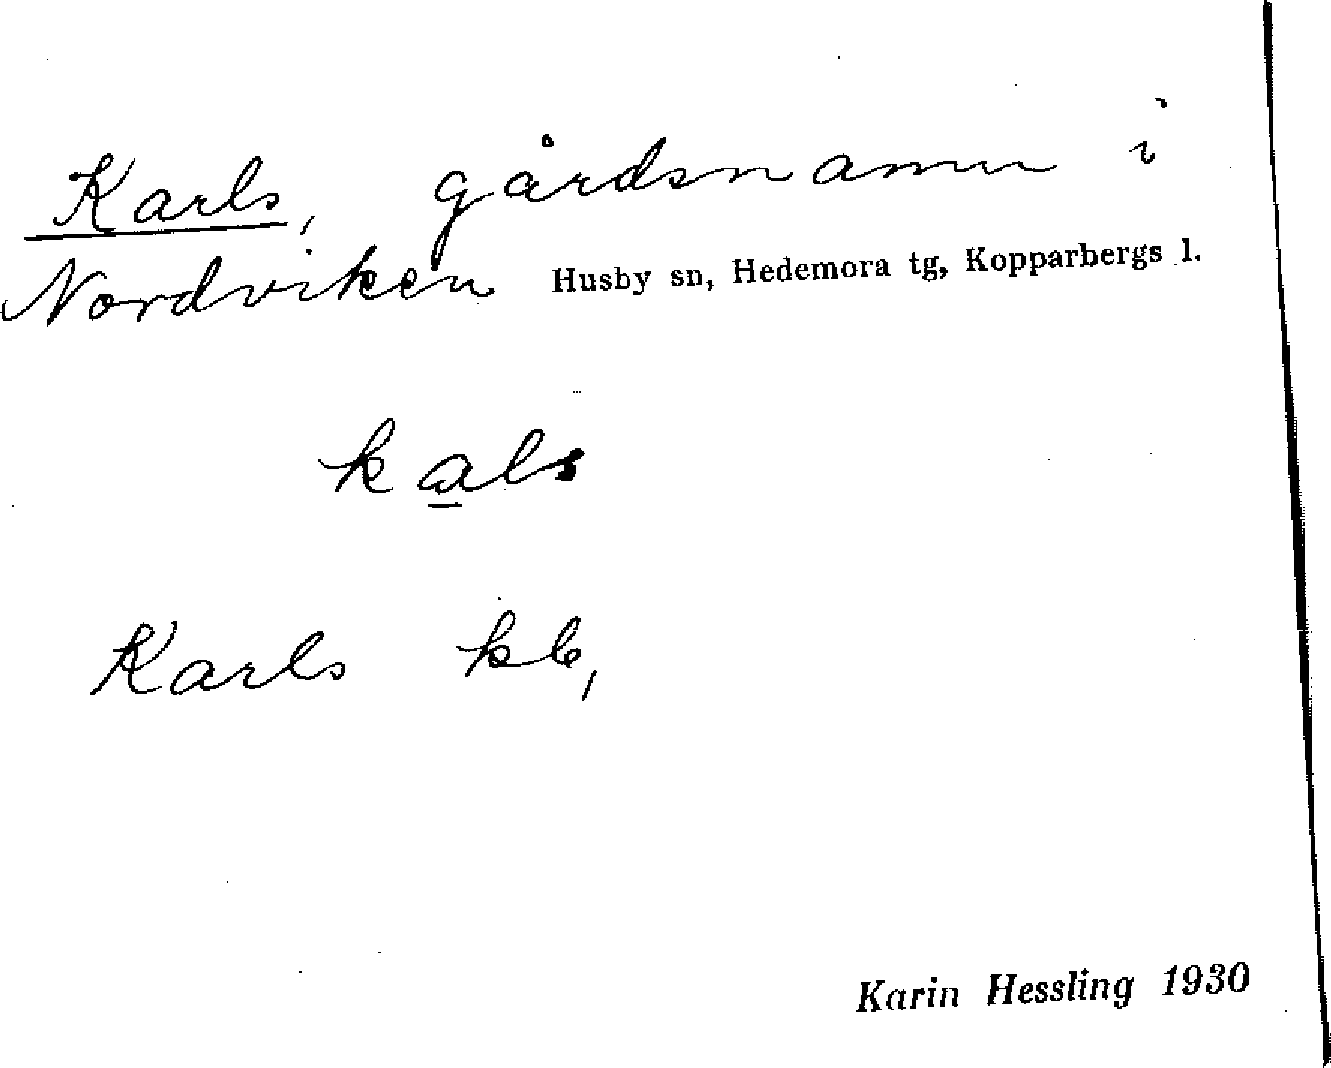 Karls, gårdsnamn i
Nordviken Husby sn, Hedemora tg, Kopparbergs l.
kals
Karls kb,
Karin Hessling 1930